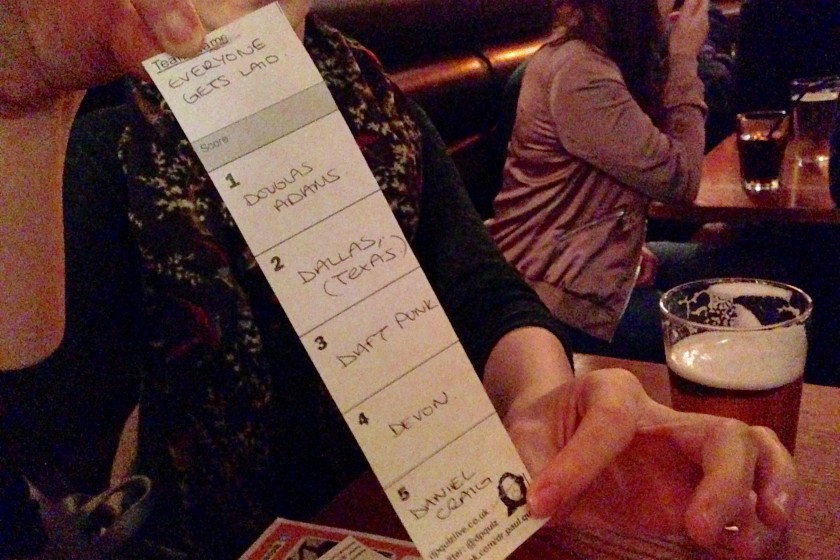 Team Name
EVERYONE
GETS LAID
Score
1
DOUGLAS
ADAMS
2
DALLAS,
(TEXAS)
3
DAFT PUNK
4
DEVON
5
DANIEL
CRAIG
dpquizlive.co.uk
@dpquiz